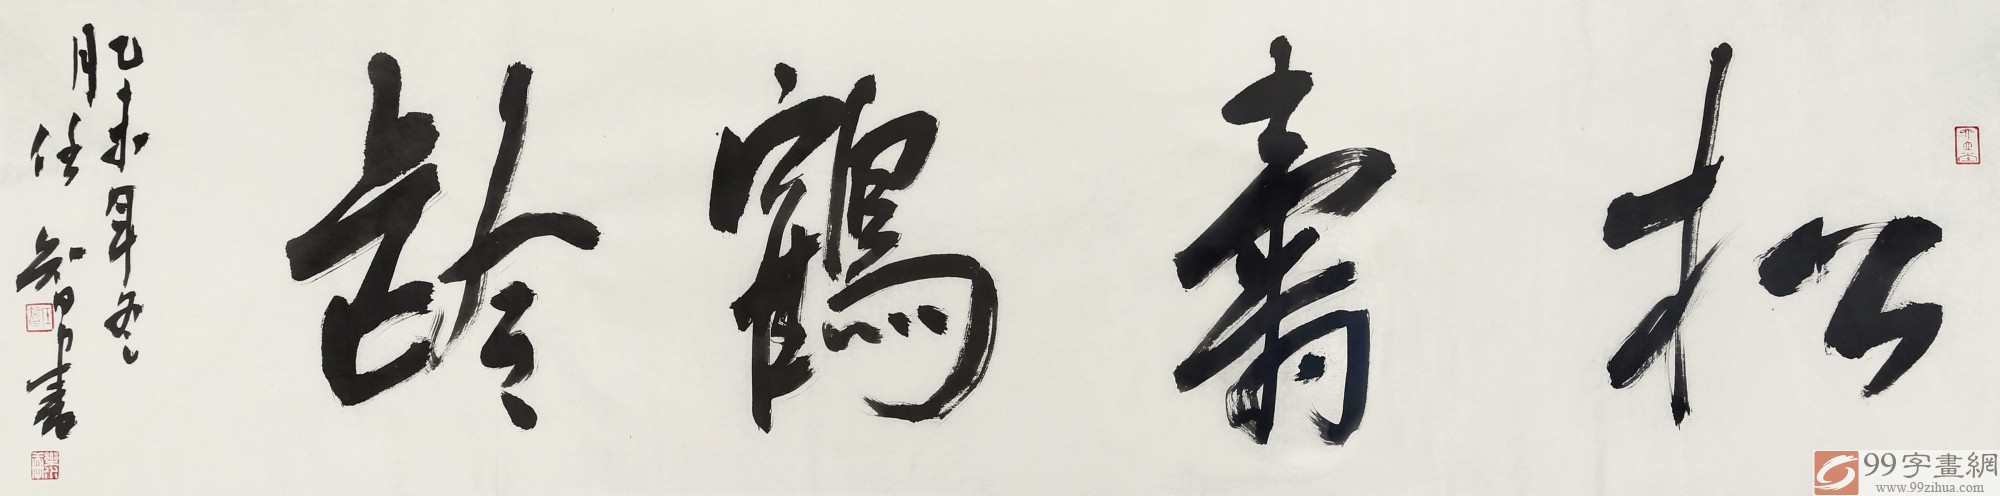 松壽鶴齡
乙未年冬
月任智明書
99字畫網
www.99zihua.com